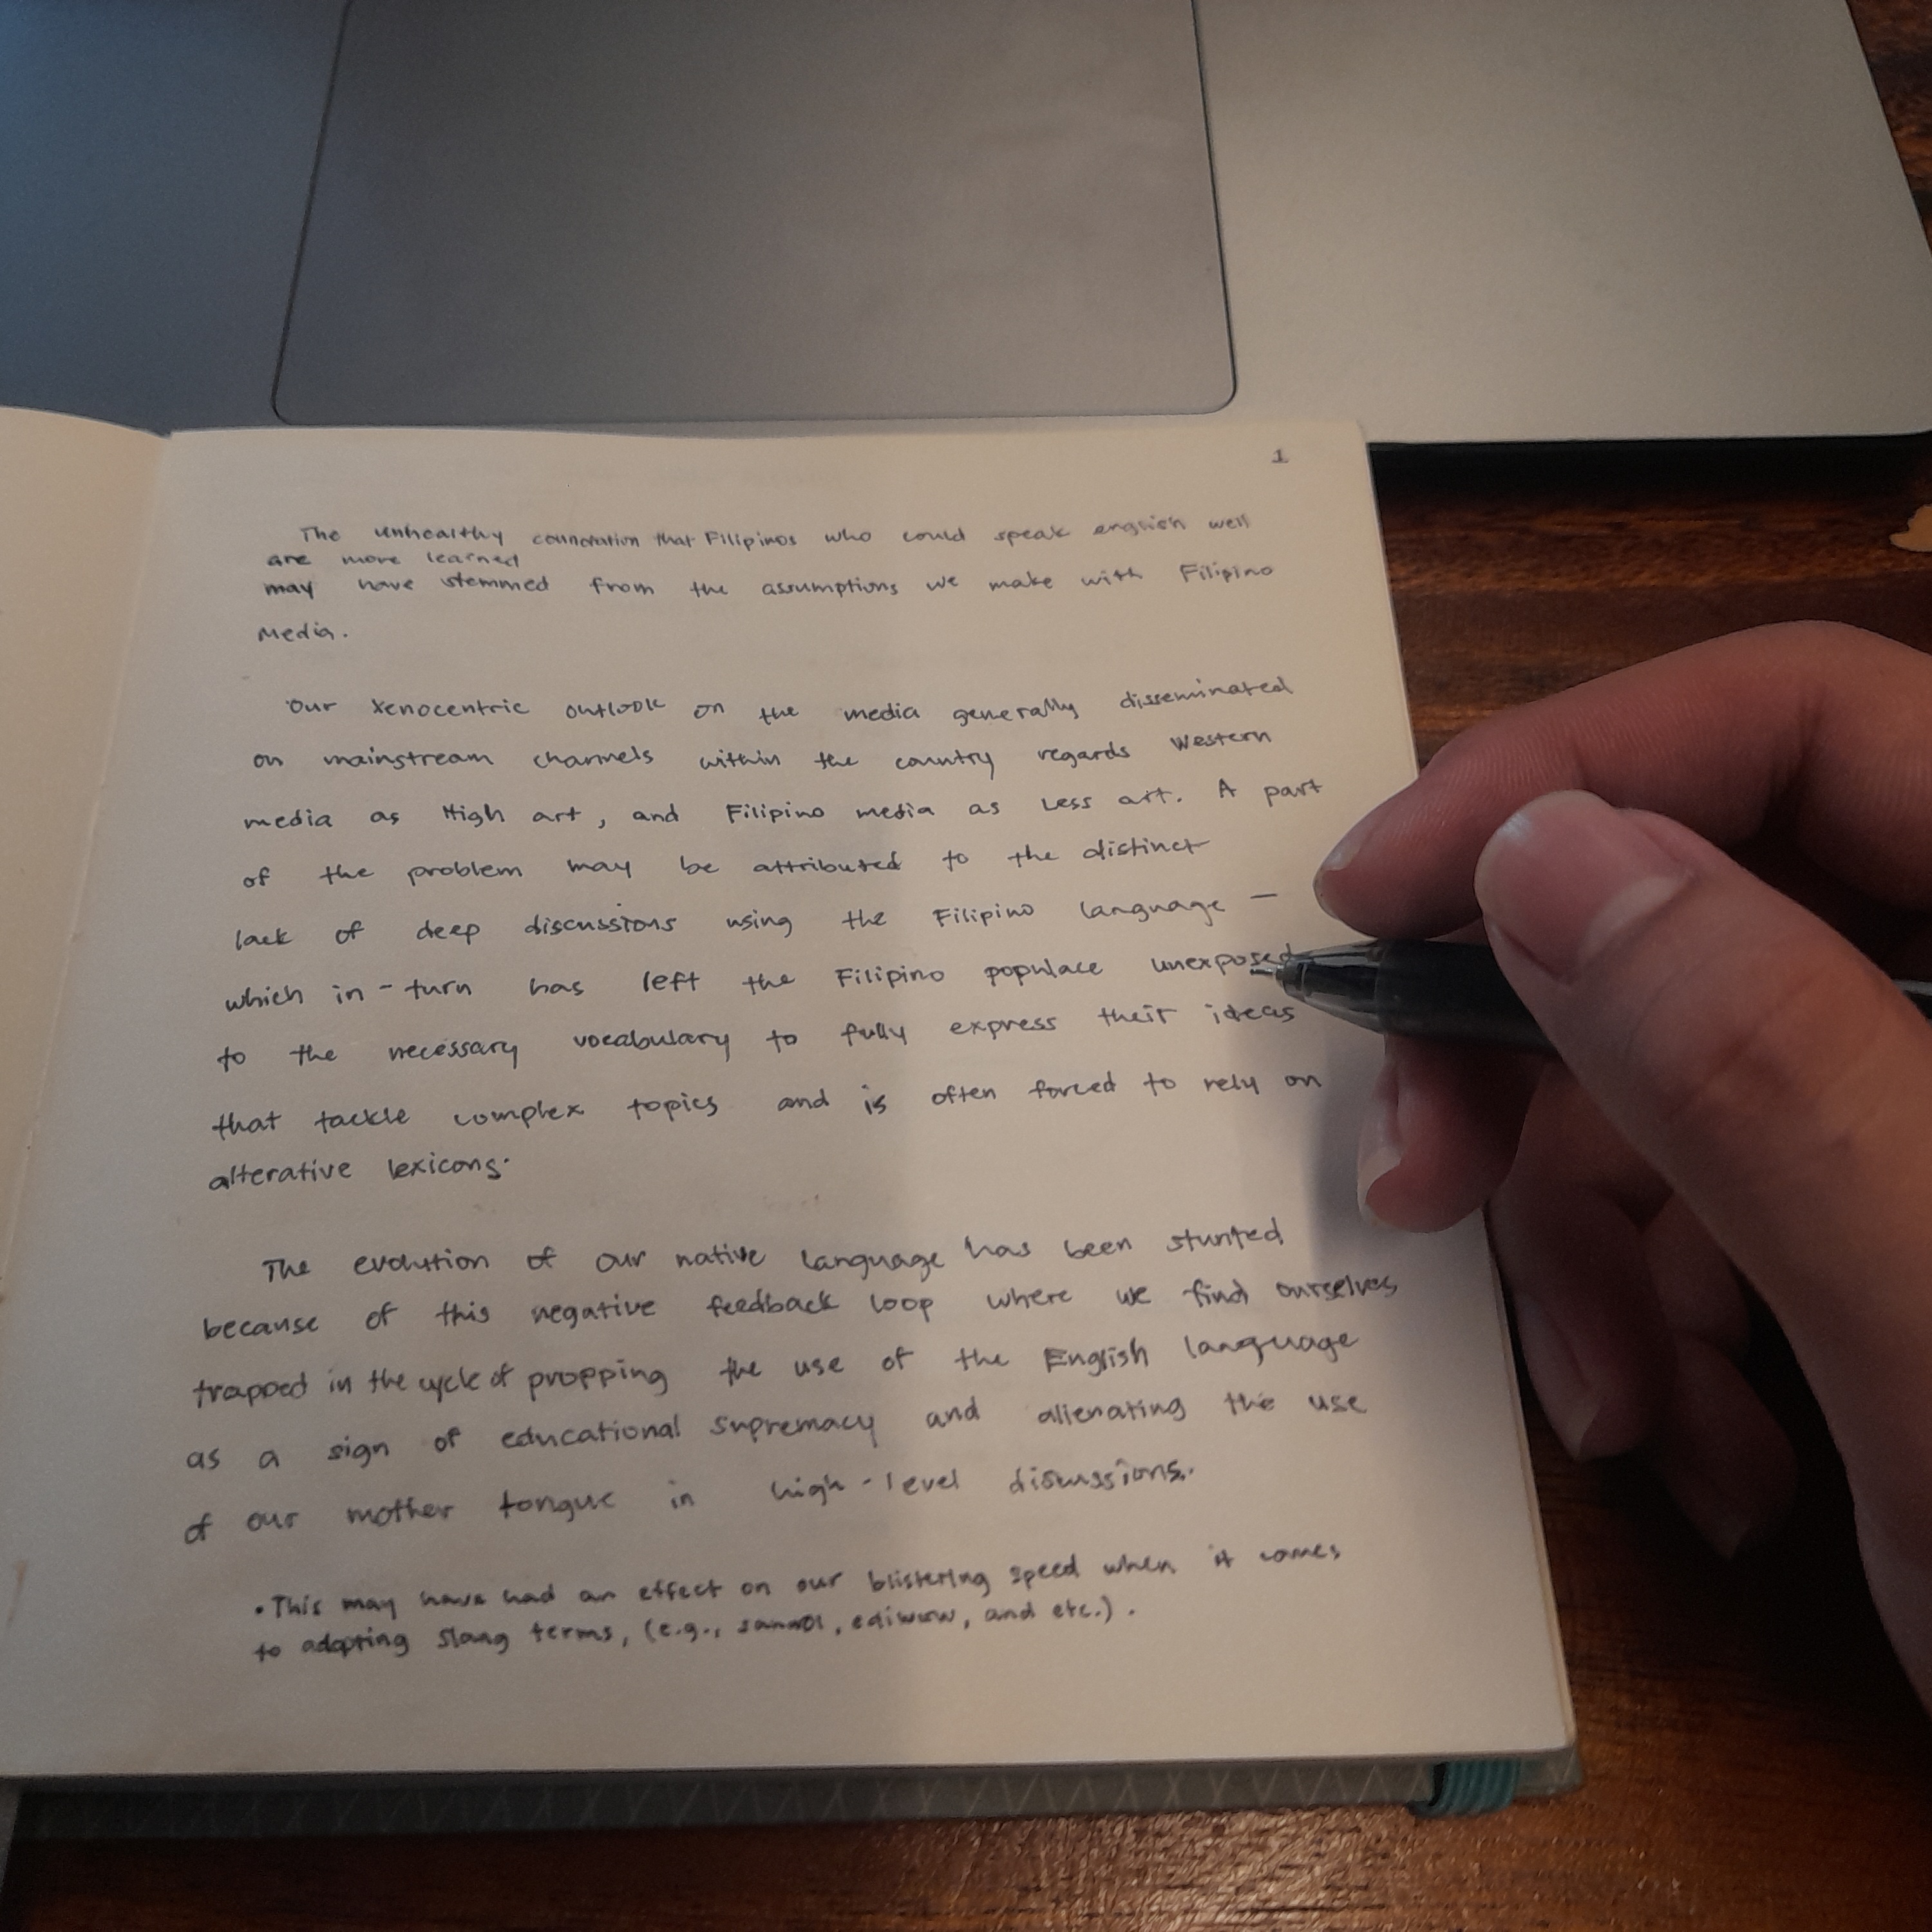 1
The unhealthy connotation that Filipinos who could speak english well
are more learned
may have stemmed from the assumptions we make with Filipino
Media.
Our Xenocentric outlook on the media generally disseminated
on mainstream channels within the country regards Western
media as High art, and Filipino media as Less art. A part
of the problem may be attributed to the distinct
lack of deep discussions using the Filipino language —
which in-turn has left the Filipino populace unexposed
to the necessary vocabulary to fully express their ideas
that tackle complex topics and is often forced to rely on
alterative lexicons.
The evolution of our native language has been stunted
because of this negative feedback loop where we find ourselves
trapped in the cycle of propping the use of the English language
as a sign of educational supremacy and alienating the use
of our mother tongue in high-level discussions.
• This may have had an effect on our blistering speed when it comes
to adopting slang terms, (e.g., ediwow, and etc.).